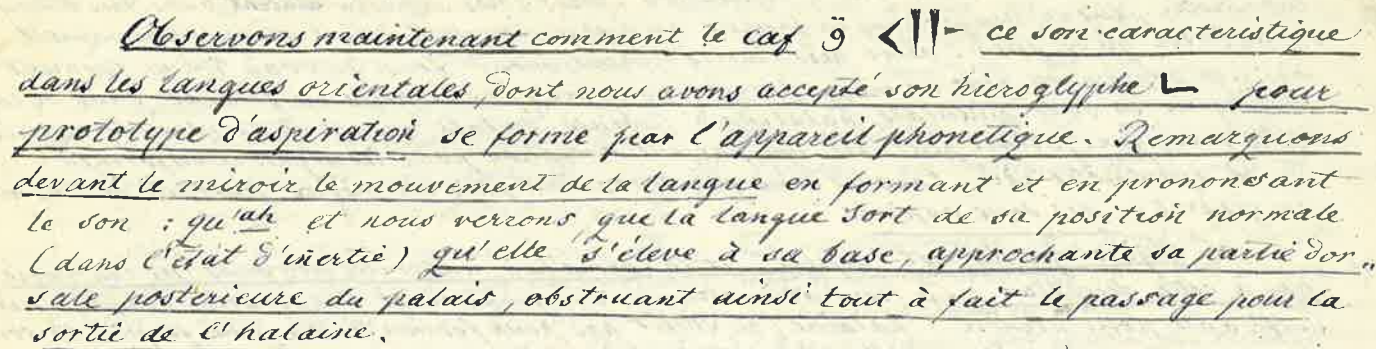 Observons maintenant comment le caf ق 𐎣 ce son caracteristique
dans les langues orientales, dont nous avons accepté son hieroglyphe L pour
prototype d'aspiration se forme par l'appareil phonetique. Remarquons
devant le miroir le mouvement de la langue en formant et en prononçant
le son : qu'ah et nous verrons, que la langue sort de sa position normale
(dans l'état d'inertie) qu'elle s'éleve à sa base, approchante sa partie dor„
sale posterieure du palais, obstruant ainsi tout à fait le passage pour la
sortie de l'halaine.